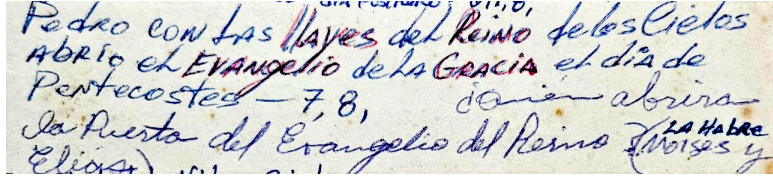 Pedro con las llaves del Reino de los Cielos
Abrío el Evangelio de la Gracia el día de
Pentecostes — 7, 8, ¿Quién abrira
la Puerta del Evangelio del Reino? La Habre
(Moises y
Elias)